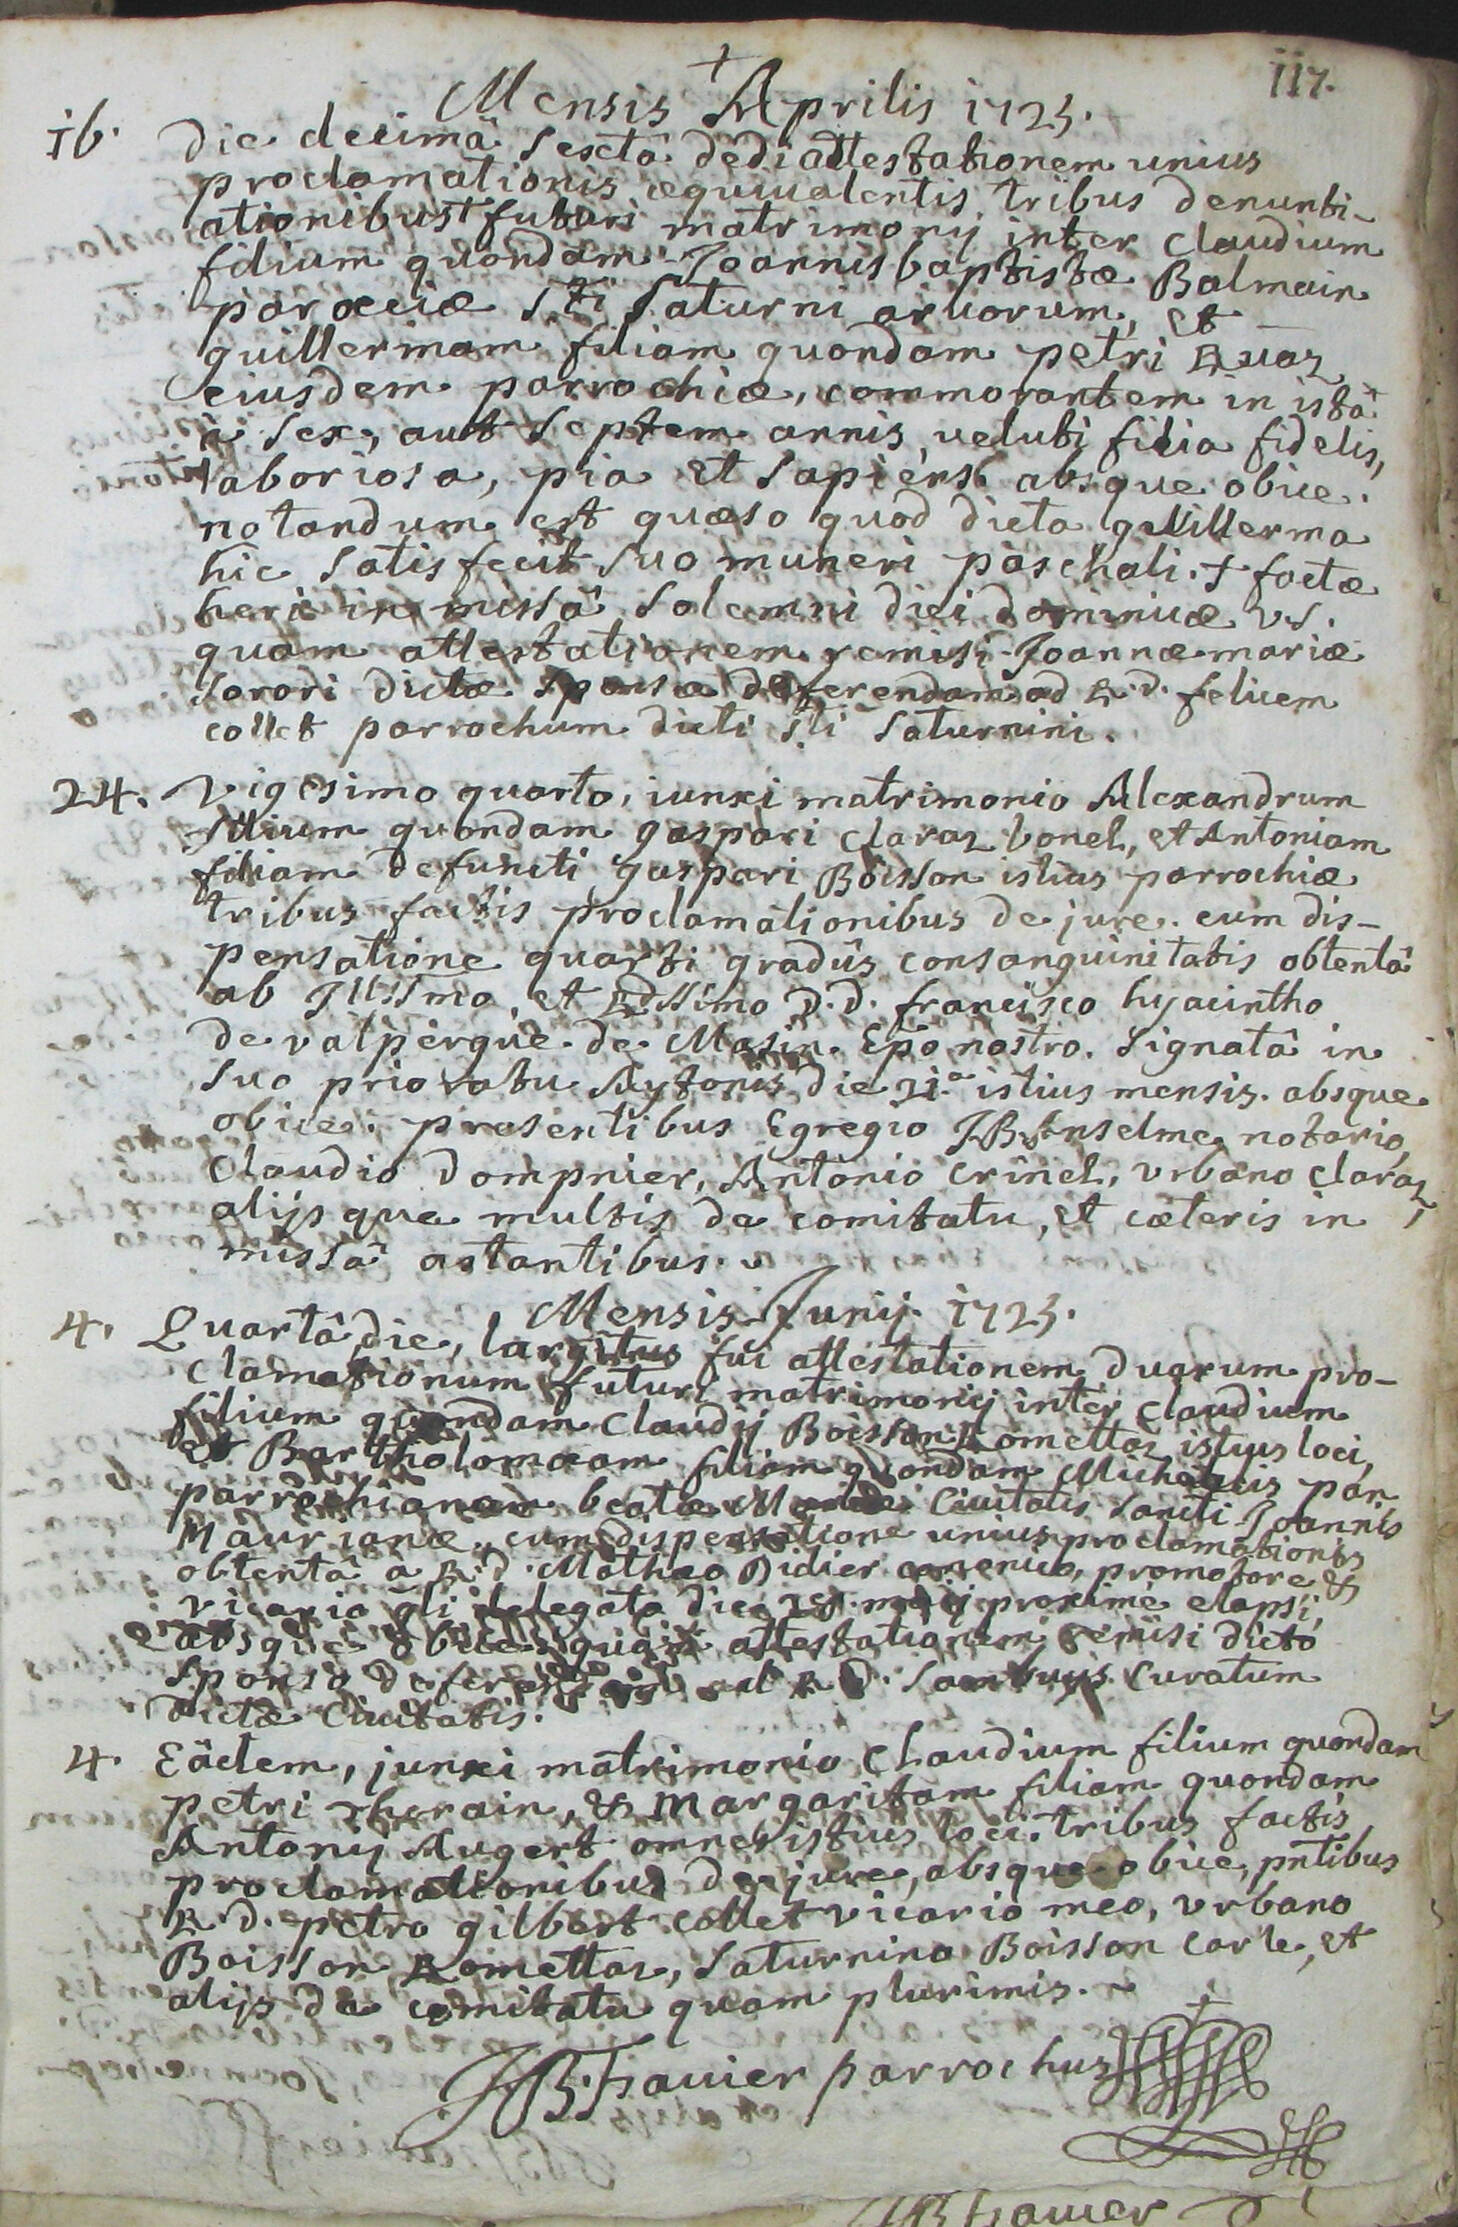 117.
Mensis Aprilis 1725.
16. Die decimâ sextâ dedi attestationem unius
proclamationis æquiualentis tribus denunti-
ationibus + futuri matrimonij inter Claudium
filium quondam Joannis baptistæ Balmain
paroeciæ Sti Saturni aruorum, et
guillermam filiam quondam petri
eiusdem parrochiæ, commorantem in istâ
à sex, aut septem annis, veluti filia fidelis,
laboriosa, pia et sapiens absque obice.
notandum est quæso quod dicta guillerma
hic satisfecit suo muneri paschali. + factæ
heri in missâ solemni diei dominicæ
quam attestationem remisi Joannæ mariæ
sorori dictæ sponsæ deferendam ad R.d. felicem
collet parrochum dicti Sti Saturnini.
24. Vigesimo quarto, iunxi matrimonio Alexandrum
filium quondam gaspari claraz bonel, et Antoniam
filiam defuncti gaspari Boisson istius parrochiæ
tribus factis proclamationibus de jure. cum dis-
pensatione quarti gradûs consanguinitatis obtentâ
ab Illssmo, et Rdssimo D.D. francisco hyacintho
de valpergue de Masin Epo nostro. signatâ in
suo prioratu Aytonis die 21.a istius mensis. absque
obice. præsentibus Egregio J.B. Anselme notario,
Claudio Dompnier, Antonio crinel, vrbano claraz,
alijsque multis de comitatu, et cæteris in
missâ astantibus.
Mensis Junij 1725.
4. Quartâ die, largitus fui attestationem duarum pro-
clamationum futuri matrimonij inter Claudium
filium quondam Claudij Boisson Romettaz istius loci,
et Bartholomæam filiam quondam Michaelis pan
parrochianam beatæ Mariæ Ciuitatis Sancti Joannis
Maurianæ, cum dispensatione unius proclamationis
obtentâ a R.d. Mathæo Didier canonico, promotore &
vicario gli delegato die maij proximè elapsi,
absque obice. quam attestationem remisi dicto
sponso ad R.D. curatum
dictæ Ciuitatis.
4. Eâdem, junxi matrimonio Claudium filium quondam
petri therain, & Margaritam filiam quondam
Antonij Augert omnes istius loci. tribus factis
proclamationibus de jure, absque obice, pntibus
R.D. petro gilbert collet vicario meo, vrbano
Boisson Romettaz, Saturnino Boisson carle, et
alijs de comitatu quam plurimis.